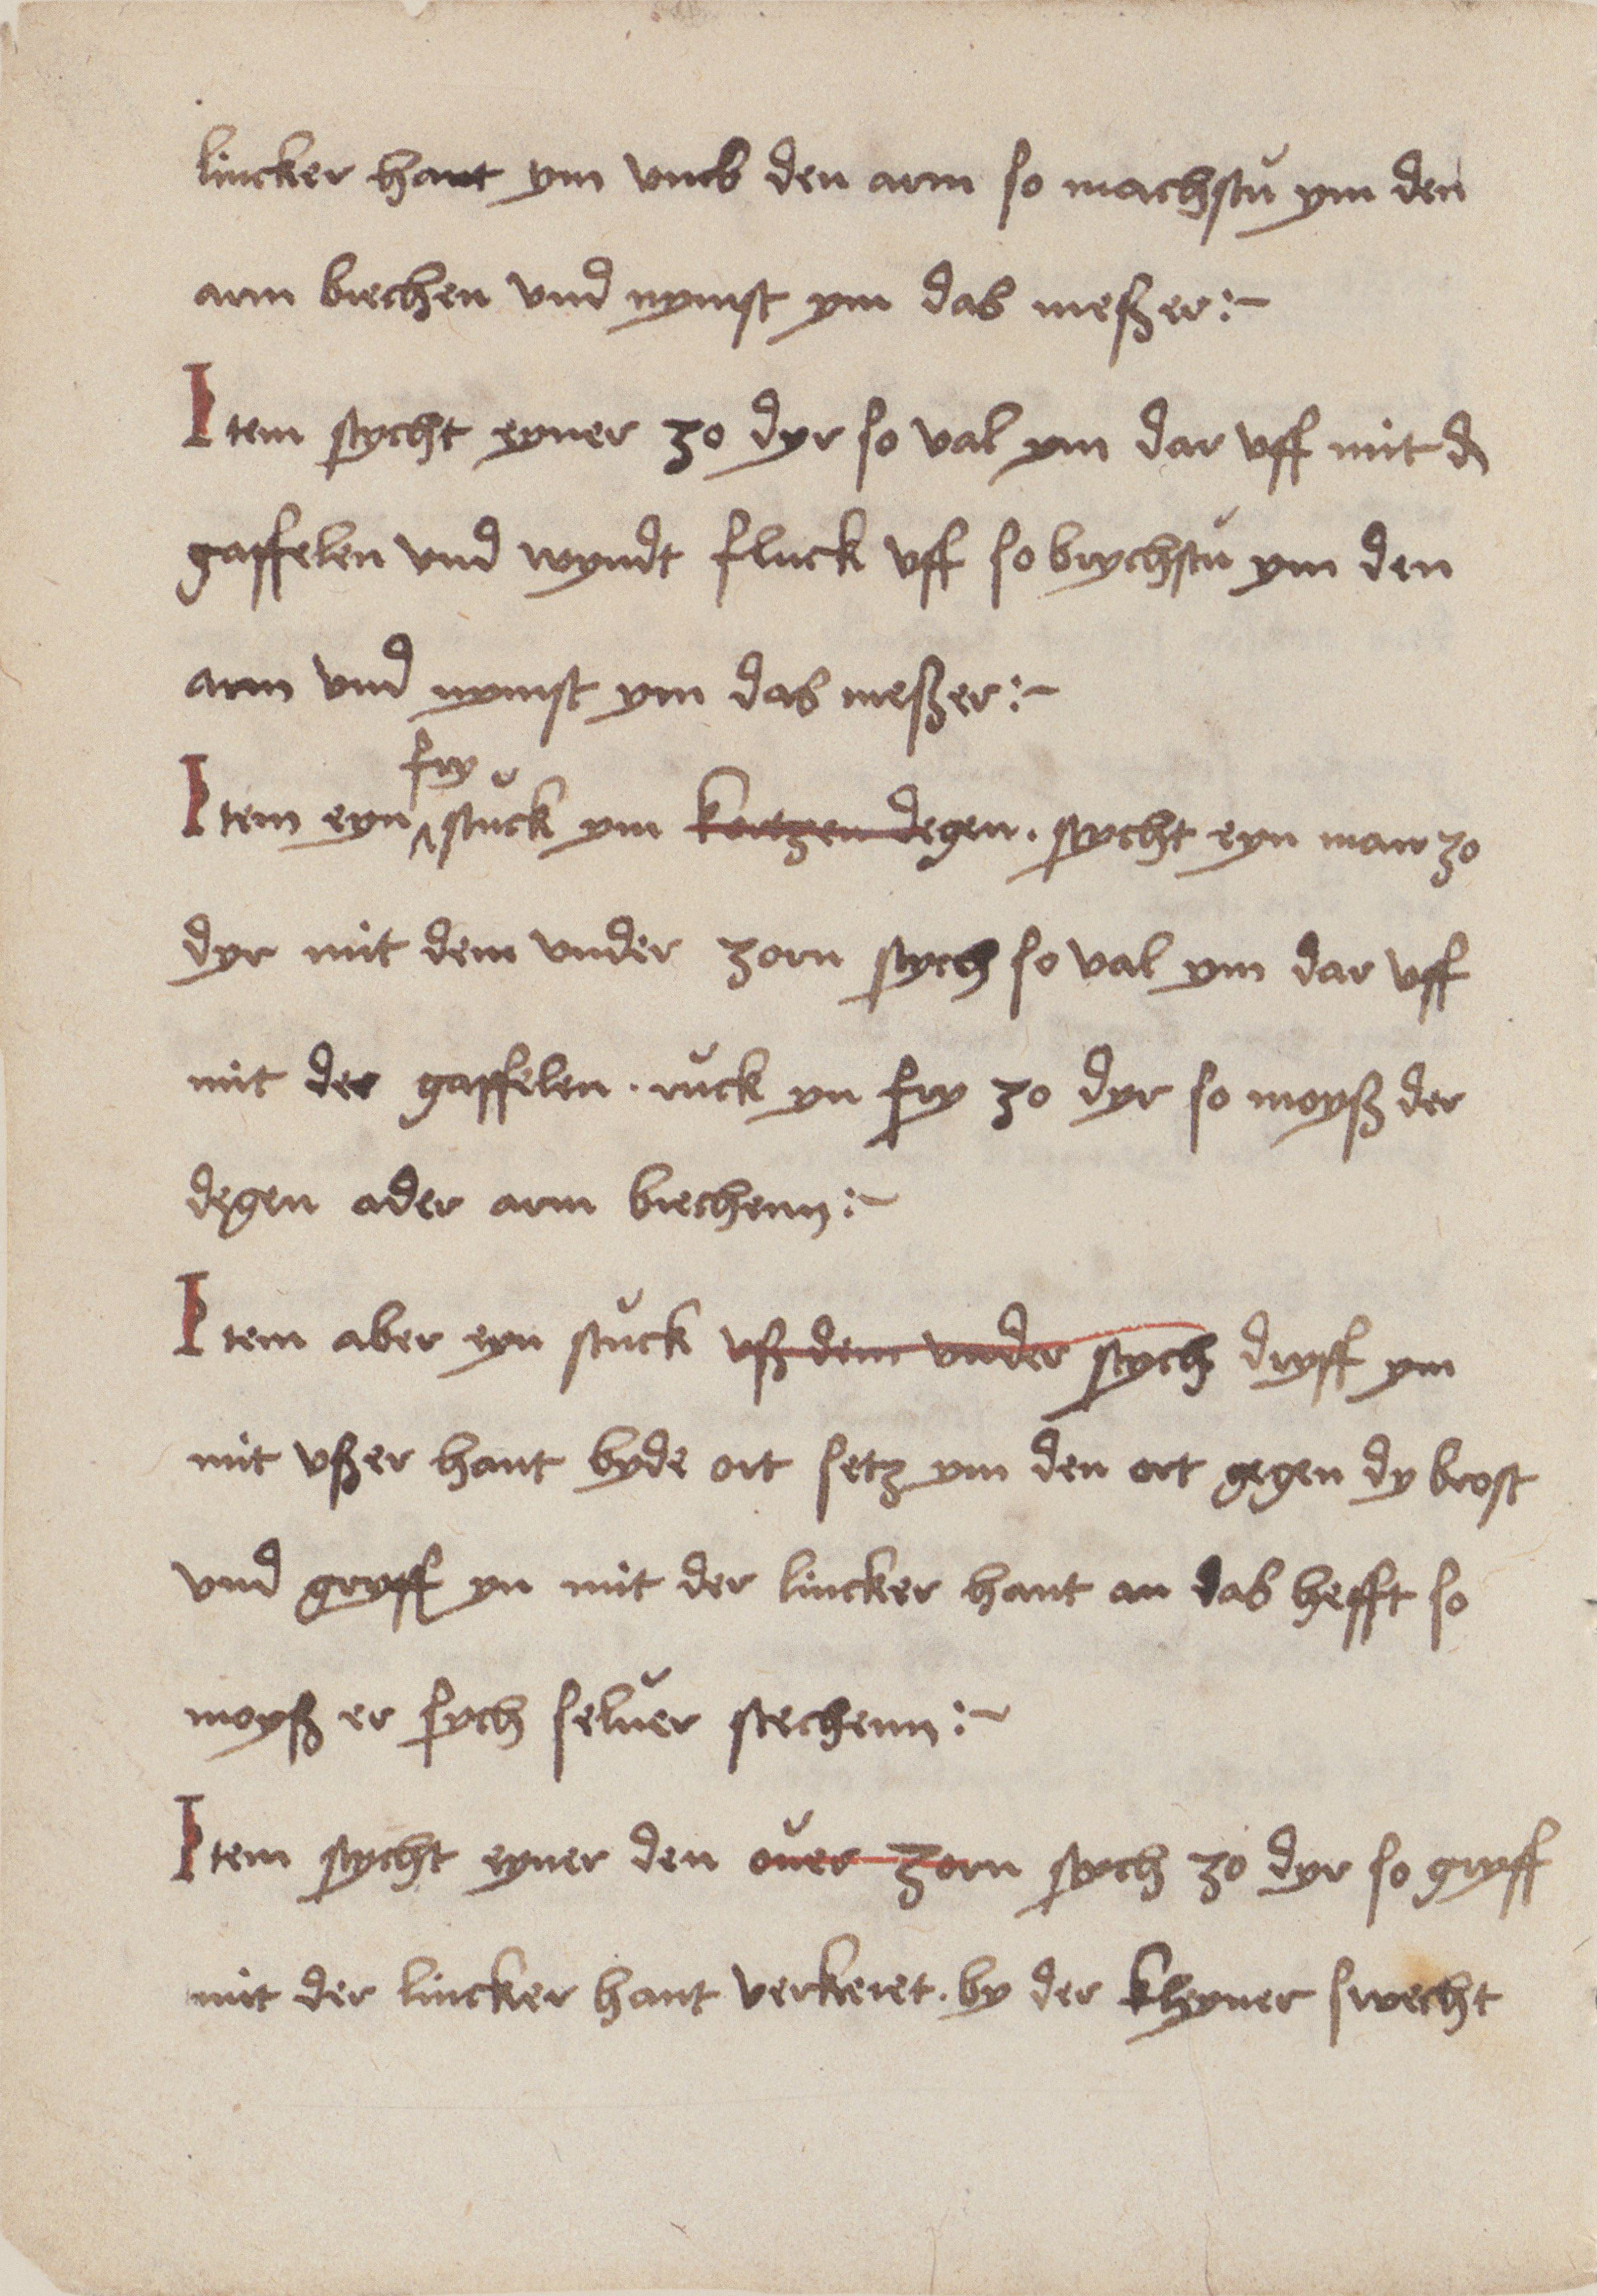 lincker hant ym vmb den arm so machstu ym den
arm brechen vnd nymst ym das meßer :~
Item stycht eyner zo dyr so val ym dar vff mit d
gaffelen vnd wyndt fluck vff so brychstu ym den
arm vnd nymst ym das meßer :~
fry
Item eyn ^ stuck ym kortzen degen . stycht eyn man zo
dyr mit dem vnder zorn stych so val ym dar vff
mit der gaffelen . ruck yn fry zo dyr so moyß der
degen ader arm brechenn :~
Item aber eyn stuck vß dem vnder stych dryff ym
mit vßer hant byde ort setz ym den ort gegen dy brost
vnd gryff yn mit der lincker hant an das hefft so
moyß er sych seluer stechenn :~
Item stycht eyner den ouer zorn stych zo dyr so gryff
mit der lincker hant verkeret . by der kleyner swecht